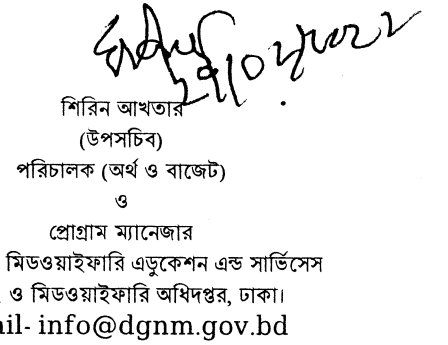 শিরিন আখতার
(উপসচিব)
পরিচালক (অর্থ ও বাজেট)
ও
প্রোগ্রাম ম্যানেজার
মিডওয়াইফারি এডুকেশন এন্ড সার্ভিসেস
ও মিডওয়াইফারি অধিদপ্তর, ঢাকা।
ail- info@dgnm.gov.bd